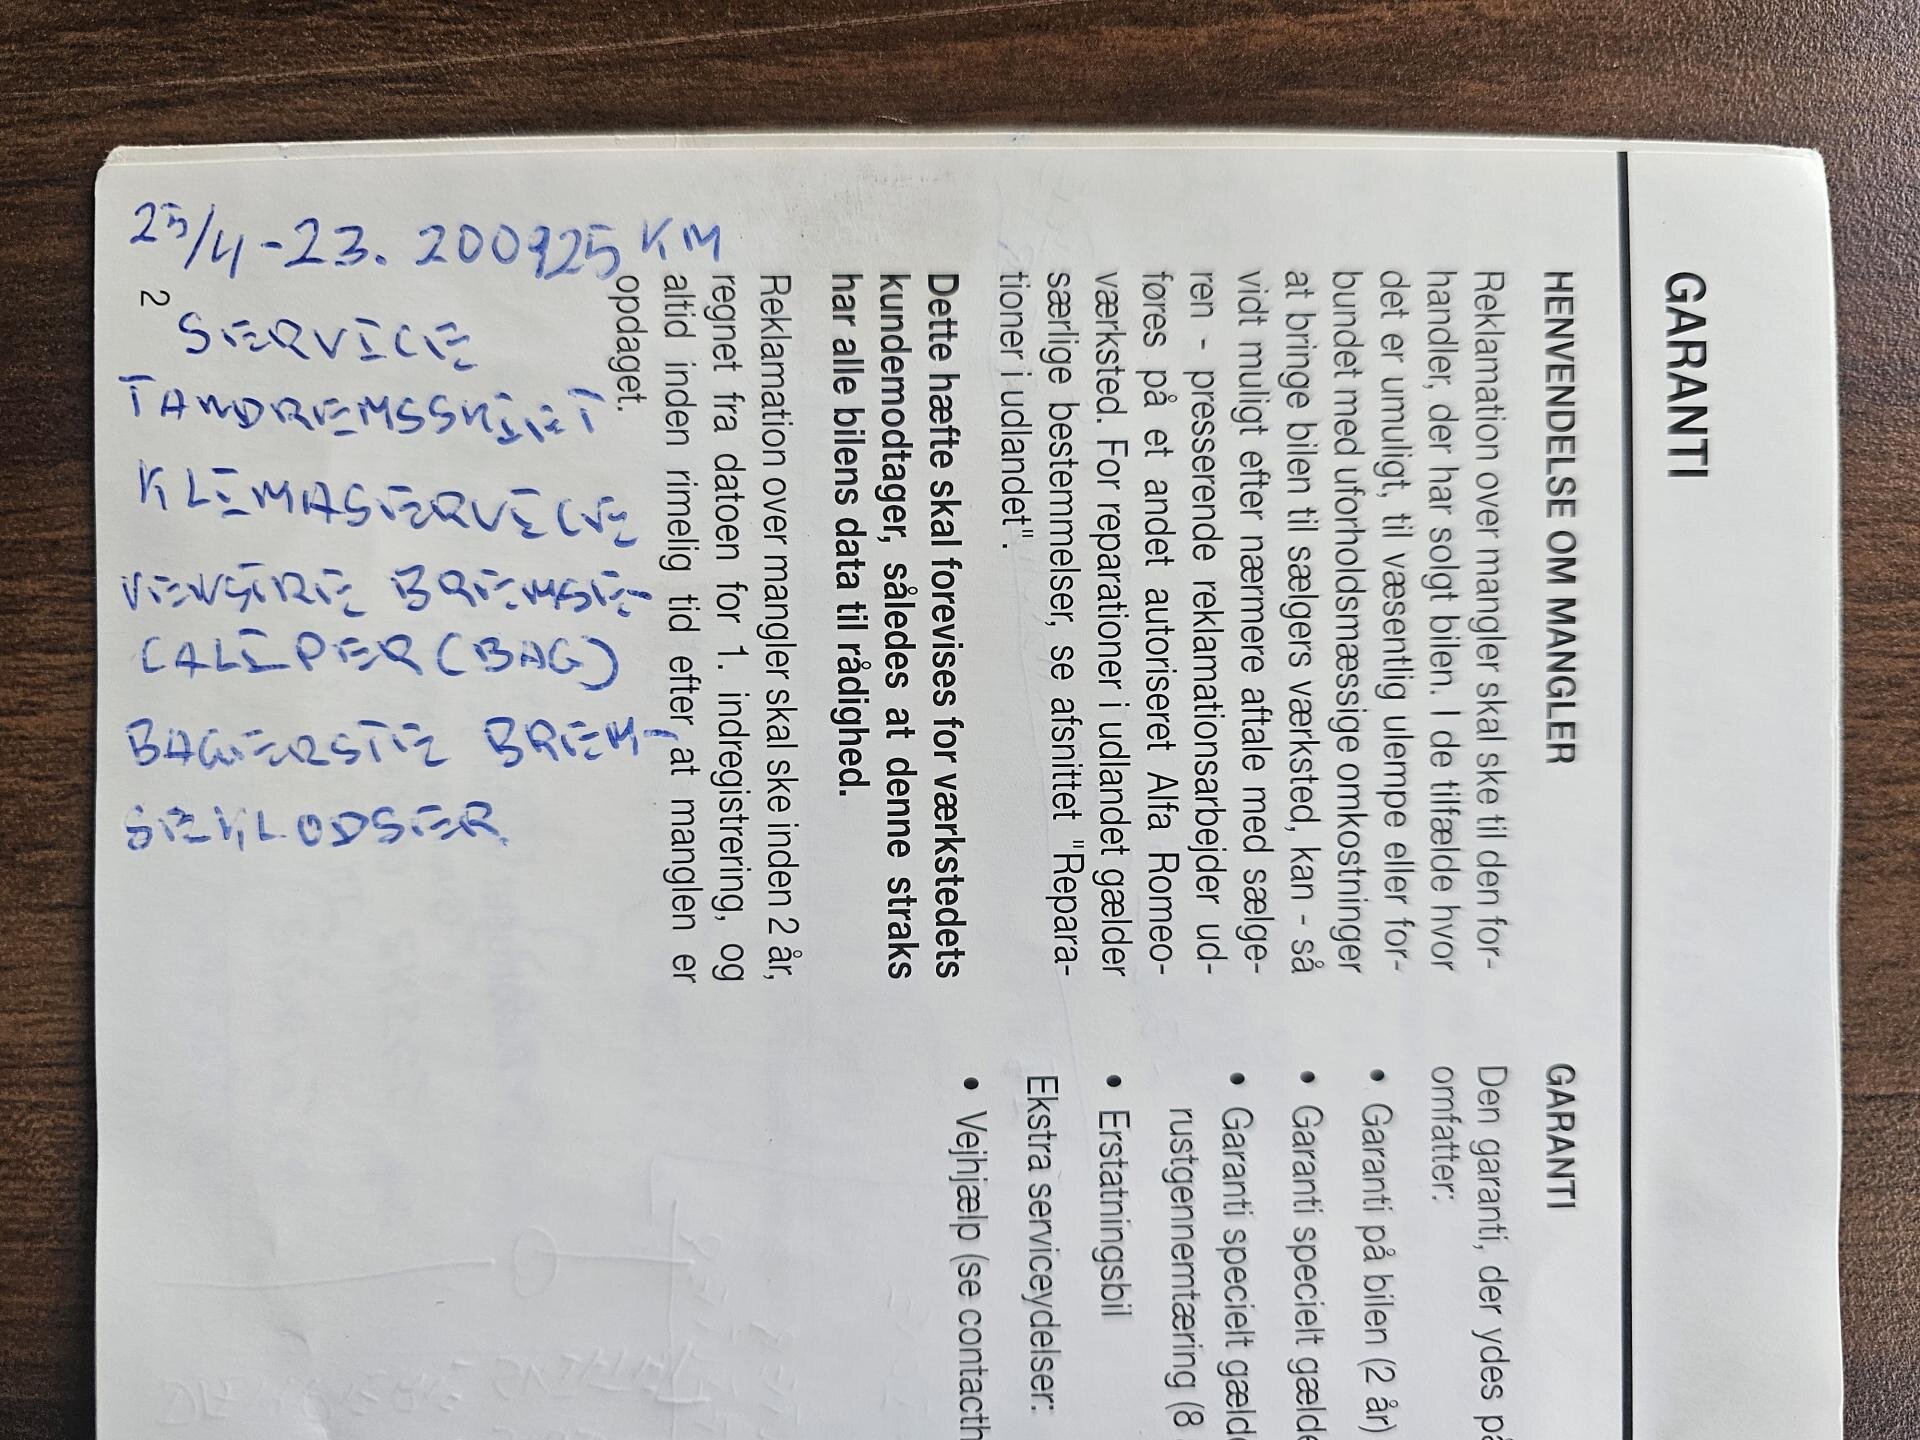 GARANTI
HENVENDELSE OM MANGLER
Reklamation over mangler skal ske til den for-
handler, der har solgt bilen. I de tilfælde hvor
det er umuligt, til væsentlig ulempe eller for-
bundet med uforholdsmæssige omkostninger
at bringe bilen til sælgers værksted, kan - så
vidt muligt efter nærmere aftale med sælge-
ren - presserende reklamationsarbejder ud-
føres på et andet autoriseret Alfa Romeo-
værksted. For reparationer i udlandet gælder
særlige bestemmelser, se afsnittet "Repara-
tioner i udlandet".
Dette hæfte skal forevises for værkstedets
kundemodtager, således at denne straks
har alle bilens data til rådighed.
Reklamation over mangler skal ske inden 2 år,
regnet fra datoen for 1. indregistrering, og
altid inden rimelig tid efter at manglen er
opdaget.
GARANTI
Den garanti, der ydes på
omfatter:
• Garanti på bilen (2 år)
• Garanti specielt gælde
• Garanti specielt gælde
rustgennemtæring (8
• Erstatningsbil
Ekstra serviceydelser:
• Vejhjælp (se contacth
2
25/4-23. 200925 KM
SERVICE
TANDREMSSKIFT
KLIMASERVICE
VENSTRE BREMSE-
CALIPER (BAG)
BAGERSTE BREM-
SEKLODSER